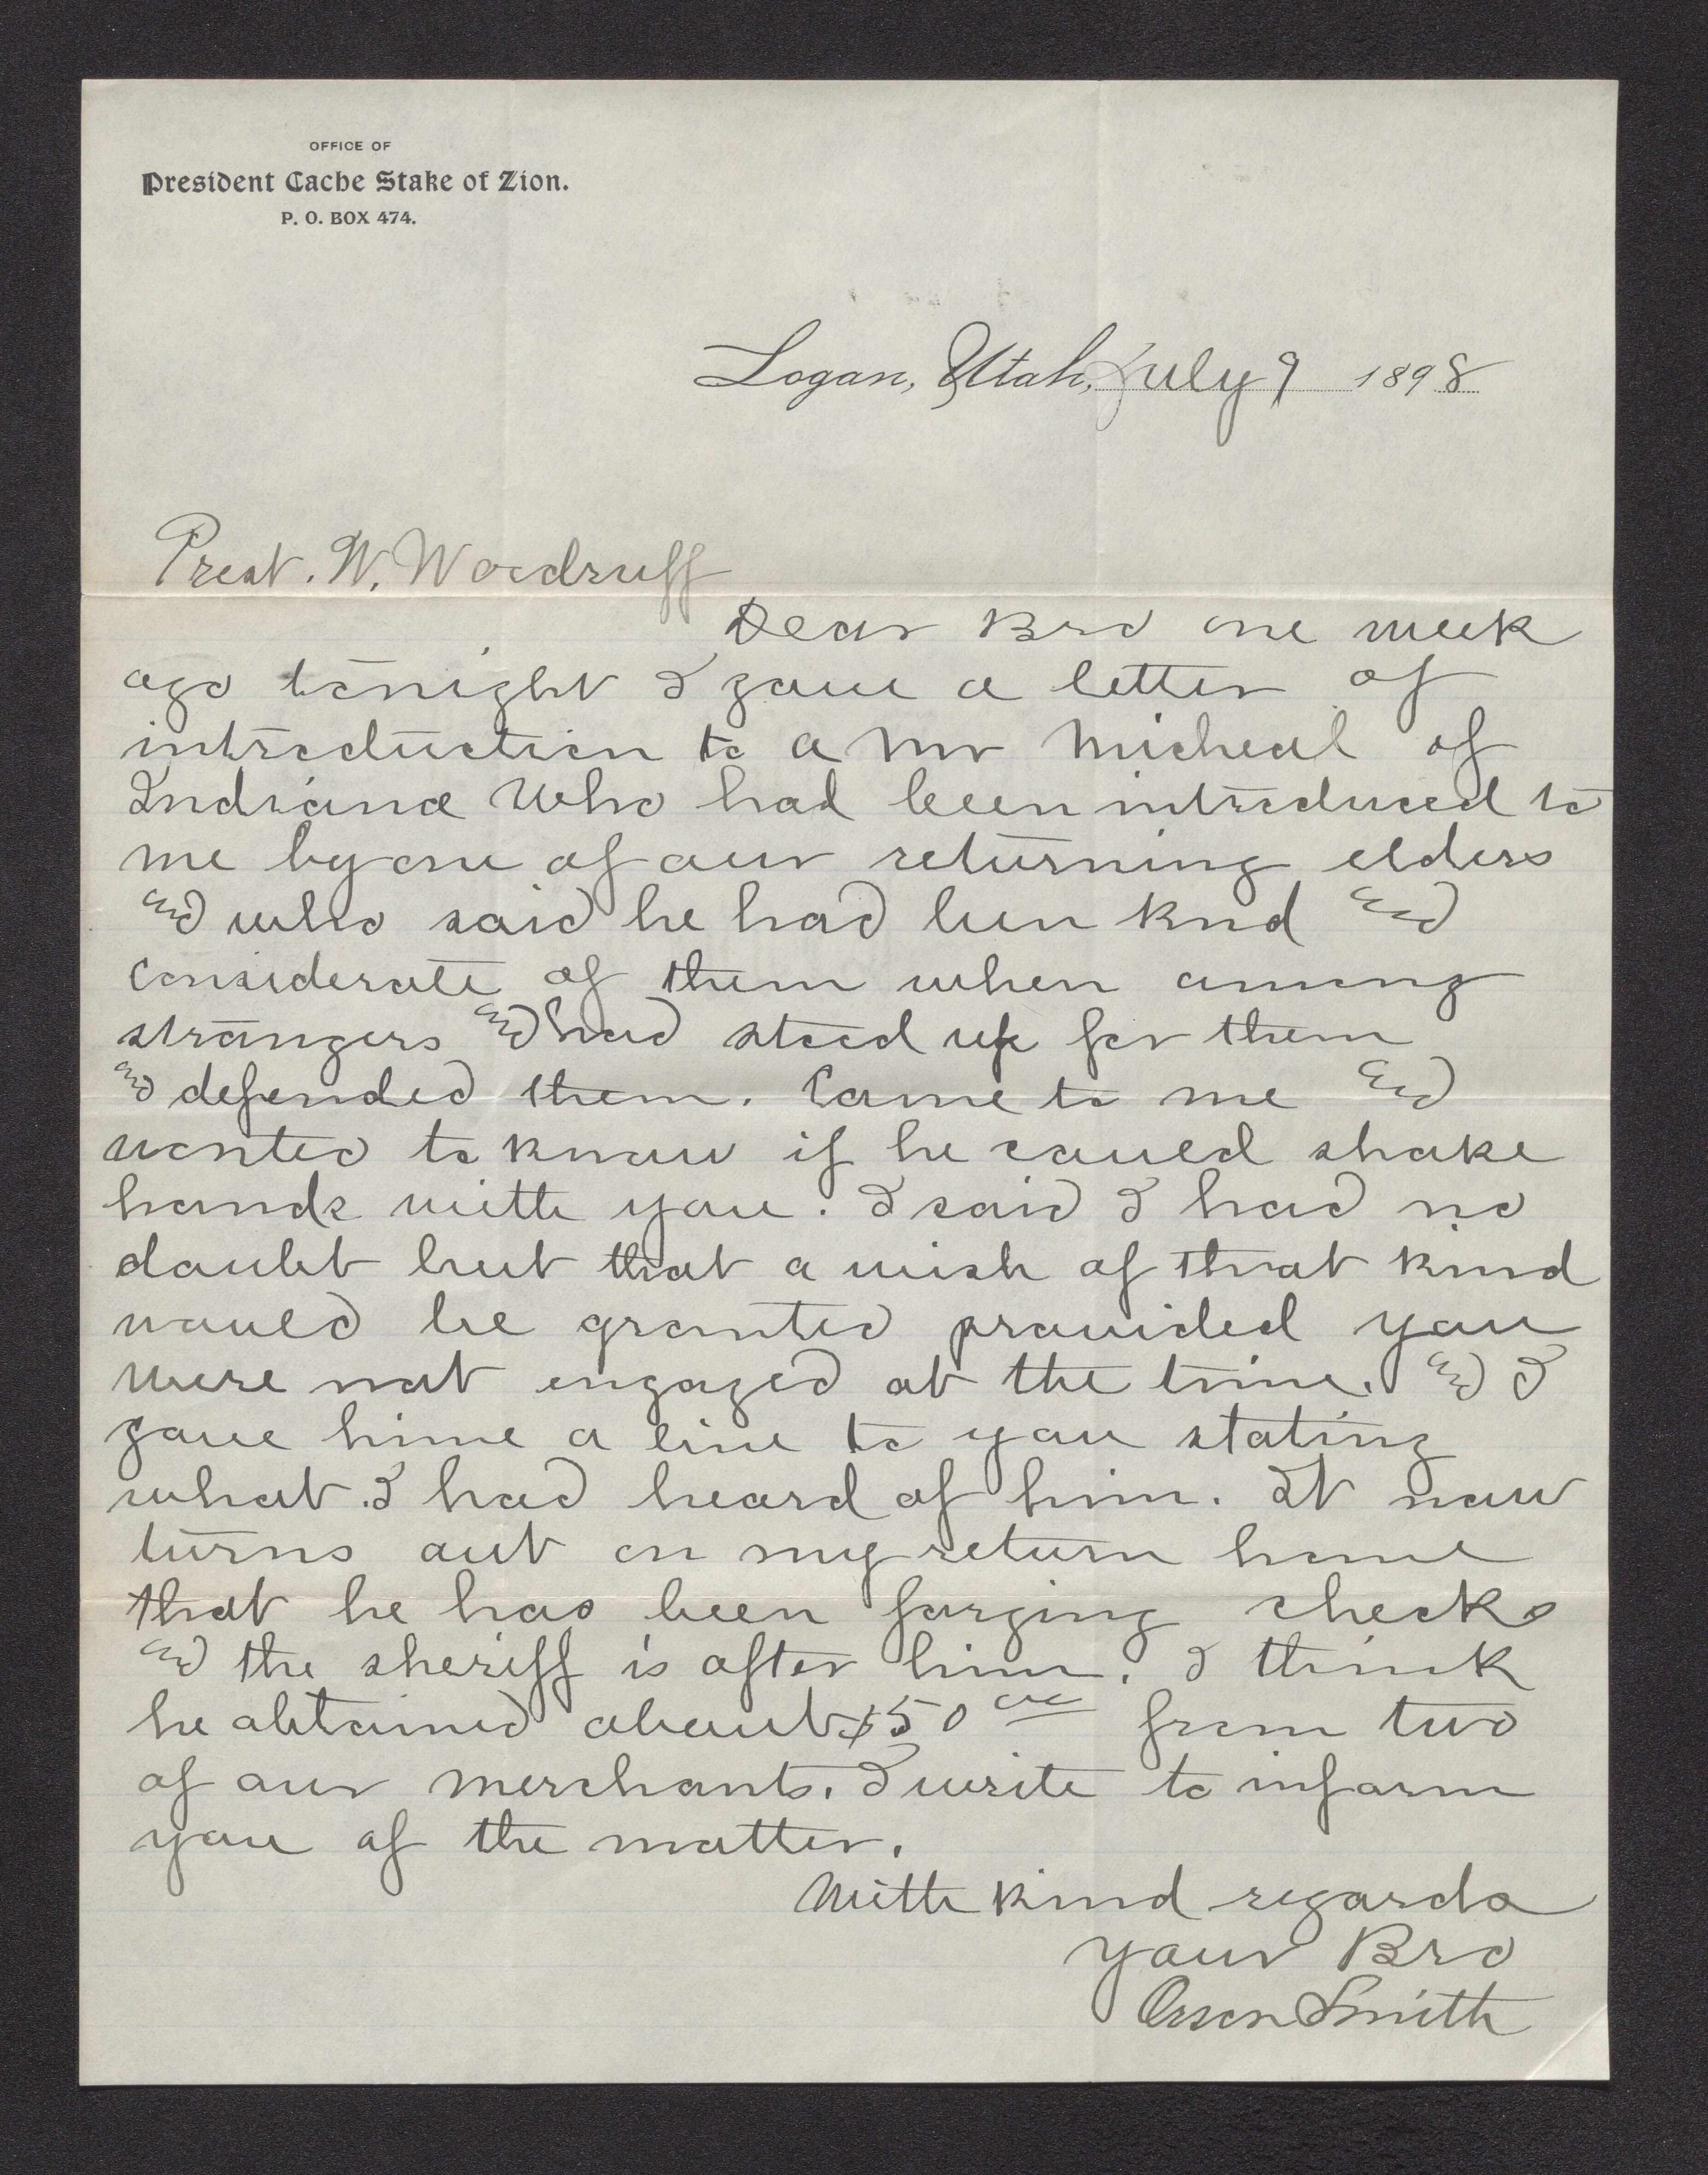 OFFICE OF
President Cache Stake of Zion.
P. O. BOX 474.
Logan, Utah, July 9 1898
Prest. W. Woodruff
Dear Bro one week
ago tonight I gave a letter of
introduction to a Mr Micheal of
Indiana who had been introduced to
me by one of our returning elders
and who said he had been kind and
considerate of them when among
strangers and had stood up for them
and defended them. Came to me and
wanted to know if he could shake
hands with you. I said I had no
doubt but that a wish of that kind
would be granted provided you
were not engaged at the time. and I
gave hime a line to you stating
what I had heard of him. It now
turns out on my return home
that he has been forging checks
and the sheriff is after him. I think
he obtained about $50 00 from two
of our merchants. I write to inform
you of the matter.
With kind regards
your Bro
Orson Smith